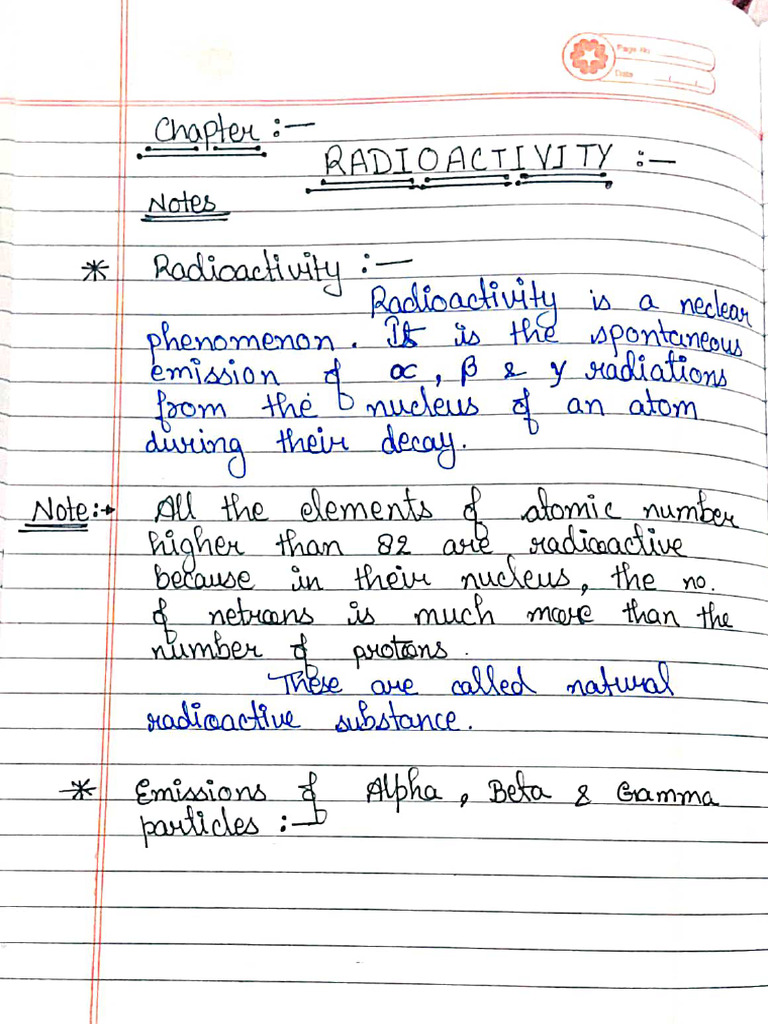 Page No.
Date / /
Chapter :-
RADIOACTIVITY :-
Notes
* Radioactivity :-
Radioactivity is a neclear
phenomenon. It is the spontaneous
emission of α, β & γ radiations
from the nucleus of an atom
during their decay.
Note:→ All the elements of atomic number
higher than 82 are radioactive
because in their nucleus, the no.
of netrons is much more than the
number of protons.
These are called natural
radioactive substance.
* Emissions of Alpha, Beta & Gamma
particles :-